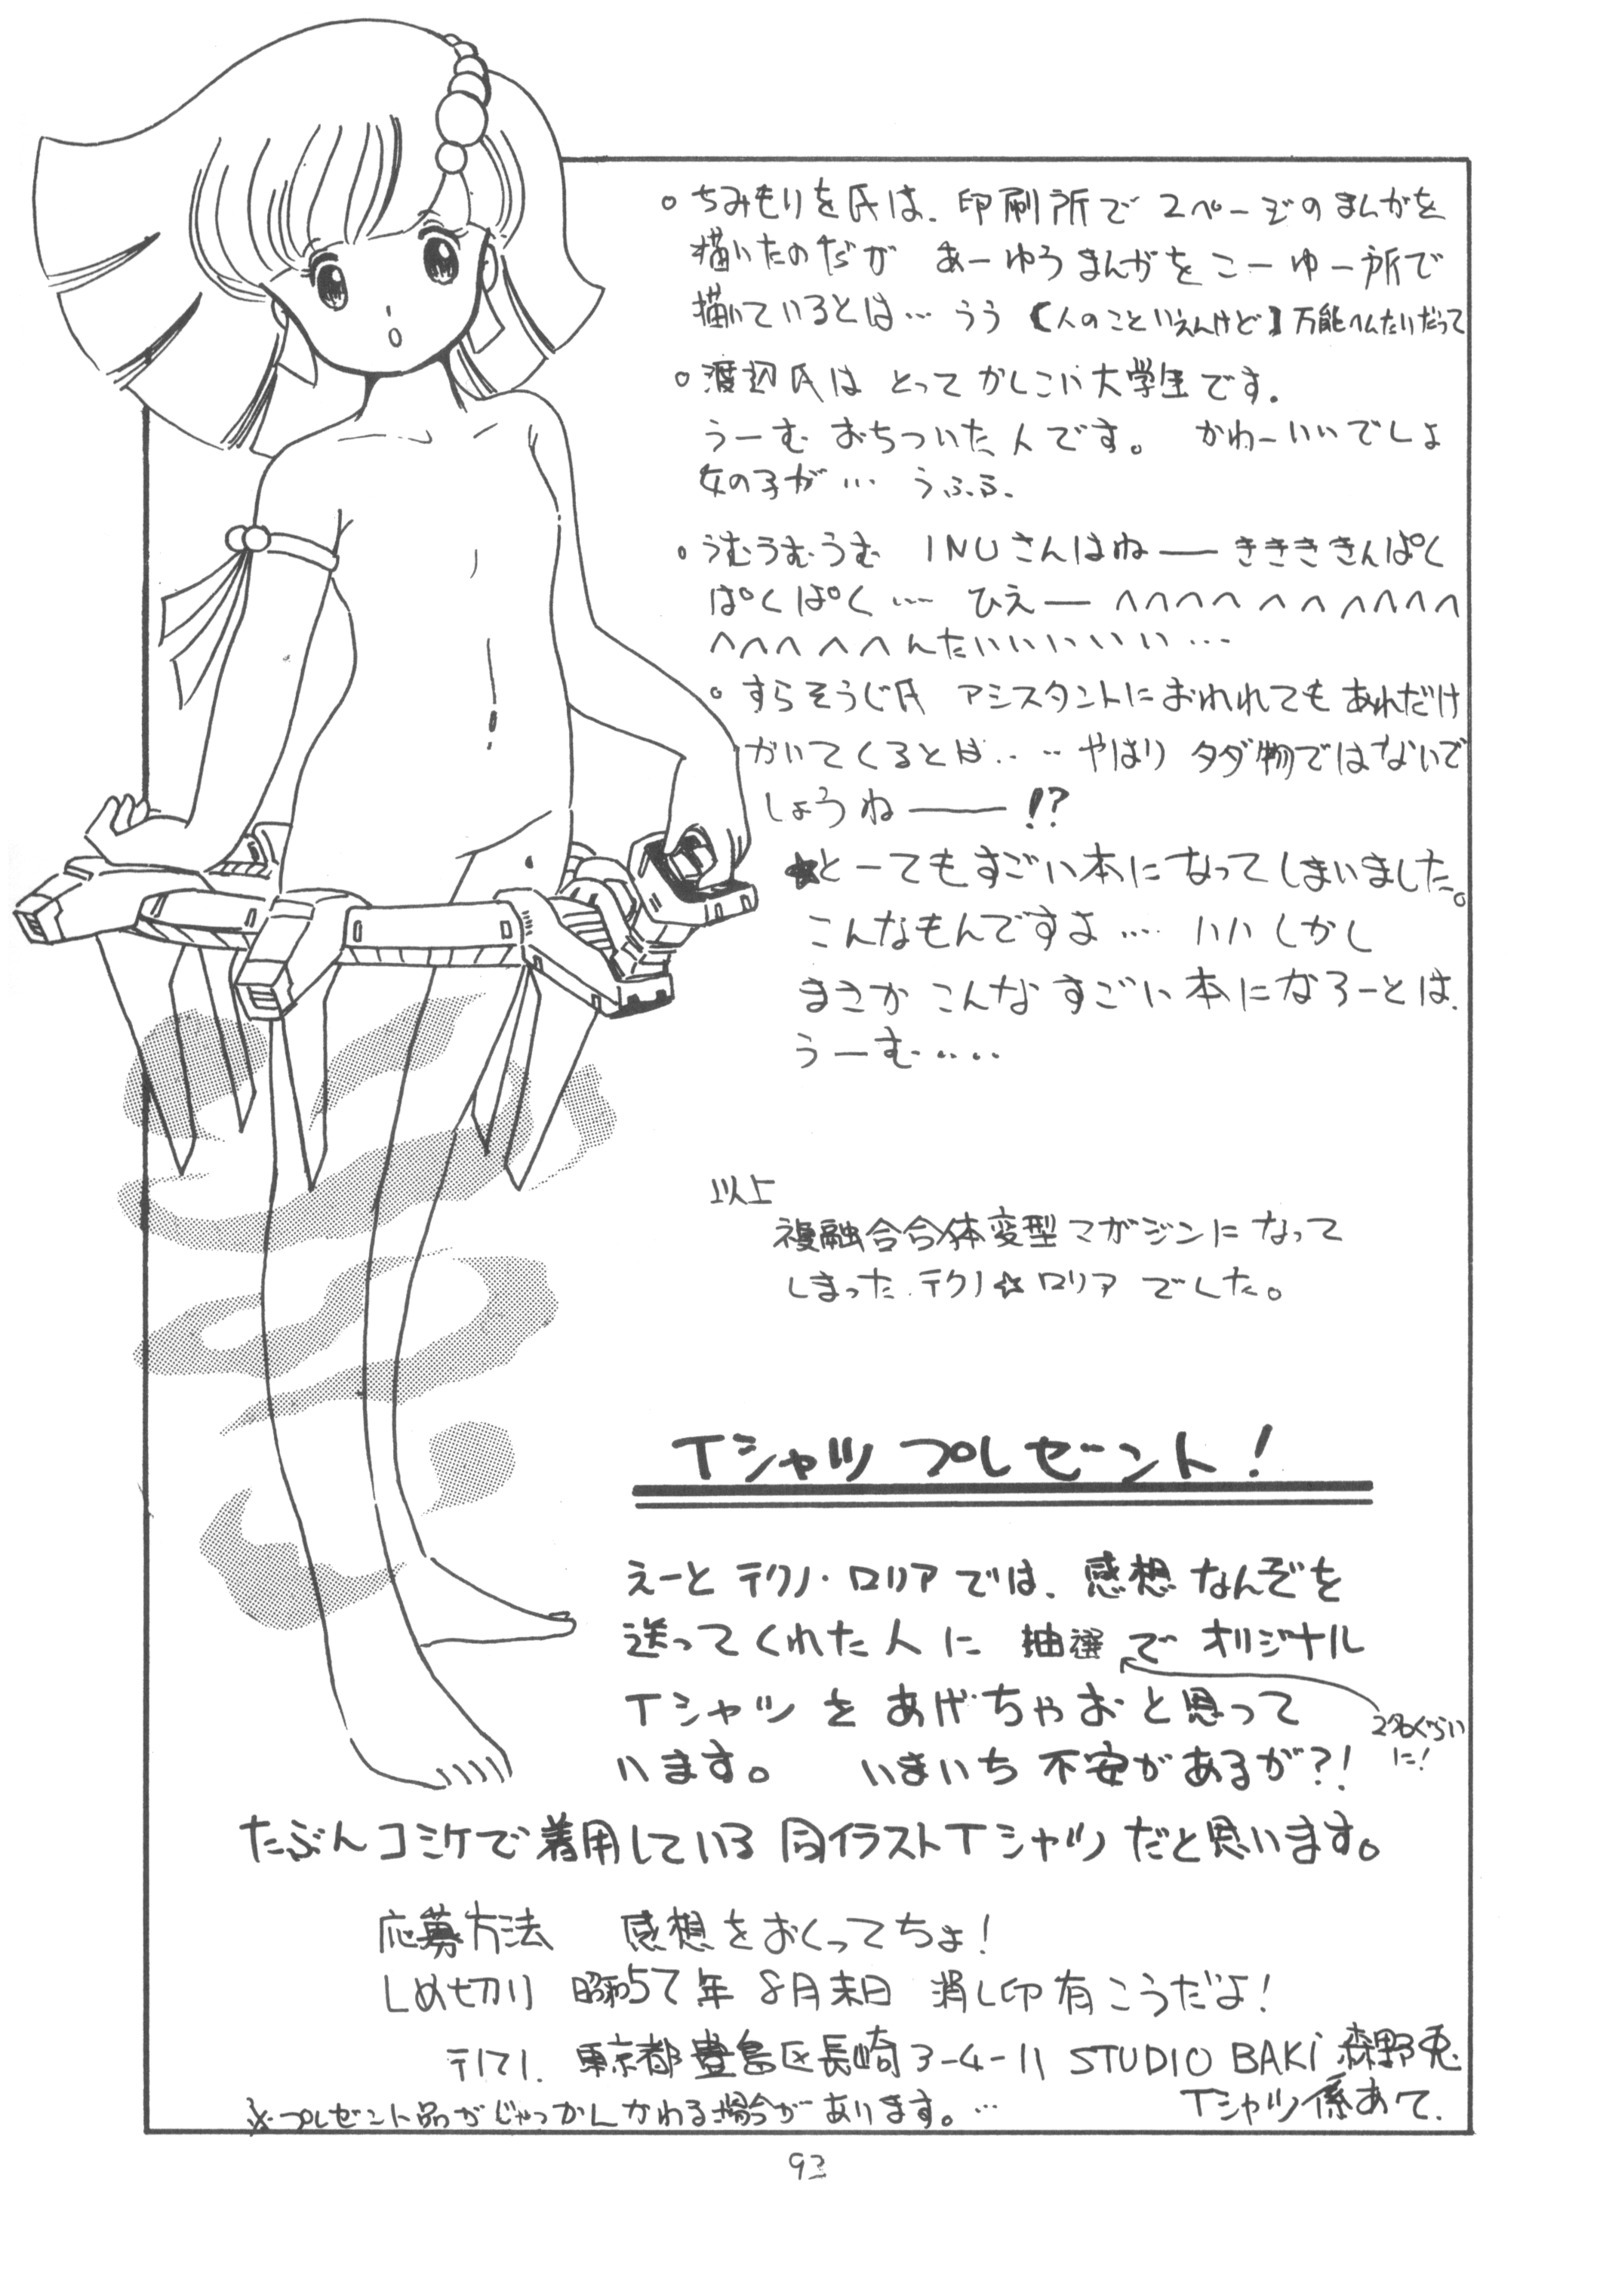 ○ ちみもりを氏は、印刷所で 2ページのまんがを
描いたのだが あーゆうまんがをこーゆー所で
描いているとは… うう 【人のこといえんけど】万能ヘんたいだって
○ 渡辺氏は とってかしこい大学生です。
うーむ おちついた人です。 かわーいいでしょ
女の子が… うふふ、
○ うむうむうむ INUさんはねー ききききんぱく
ぱくぱく… ひえー へへへへへへへへへへへ
へへへへへへんたいいいいいい…
○ すらそうじ氏 アシスタントにおわれてもあれだけ
かいてくるとは‥‥やはり タダ物ではないで
しょうねー !?
★とーてもすごい本になってしまいました。
こんなもんですよ‥‥ いいしかし
まさか こんなすごい本になろーとは、
うーむ‥‥
以上
複融合合体変型マガジンになって
しまった テクノ☆ロリア でした。
Tシャツ プレゼント!
えーと テクノ・ロリアでは、感想なんぞを
送ってくれた人に 抽選で オリジナル
Tシャツ を あげちゃおと思って
2名ぐらい
に!
います。 いまいち 不安があるが?!
たぶんコミケで着用している同イラストTシャツだと思います。
応募方法 感想をおくってちょ!
しめ切り 昭和57年 8月末日 消し印有こうだよ!
〒171. 東京都豊島区長崎3-4-11 STUDIO BAKI 森野兎
Tシャツ係あて.
※プレゼント品がじゃっかんかわる場合があります。…
93